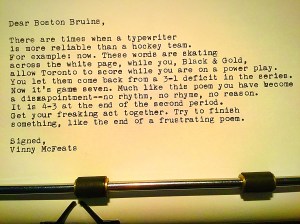 Dear Boston Bruins,
There are times when a typewriter
is more reliable than a hockey team.
For example: now. These words are skating
across the white page, while you, Black & Gold,
allow Toronto to score while you are on a power play.
You let them come back from a 3-1 deficit in the series.
Now it's game seven. Much like this poem you have become
a disappointment--no rhythm, no rhyme, no reason.
It is 4-3 at the end of the second period.
Get your freaking act together. Try to finish
something, like the end of a frustrating poem.
Signed,
Vinny McFeats